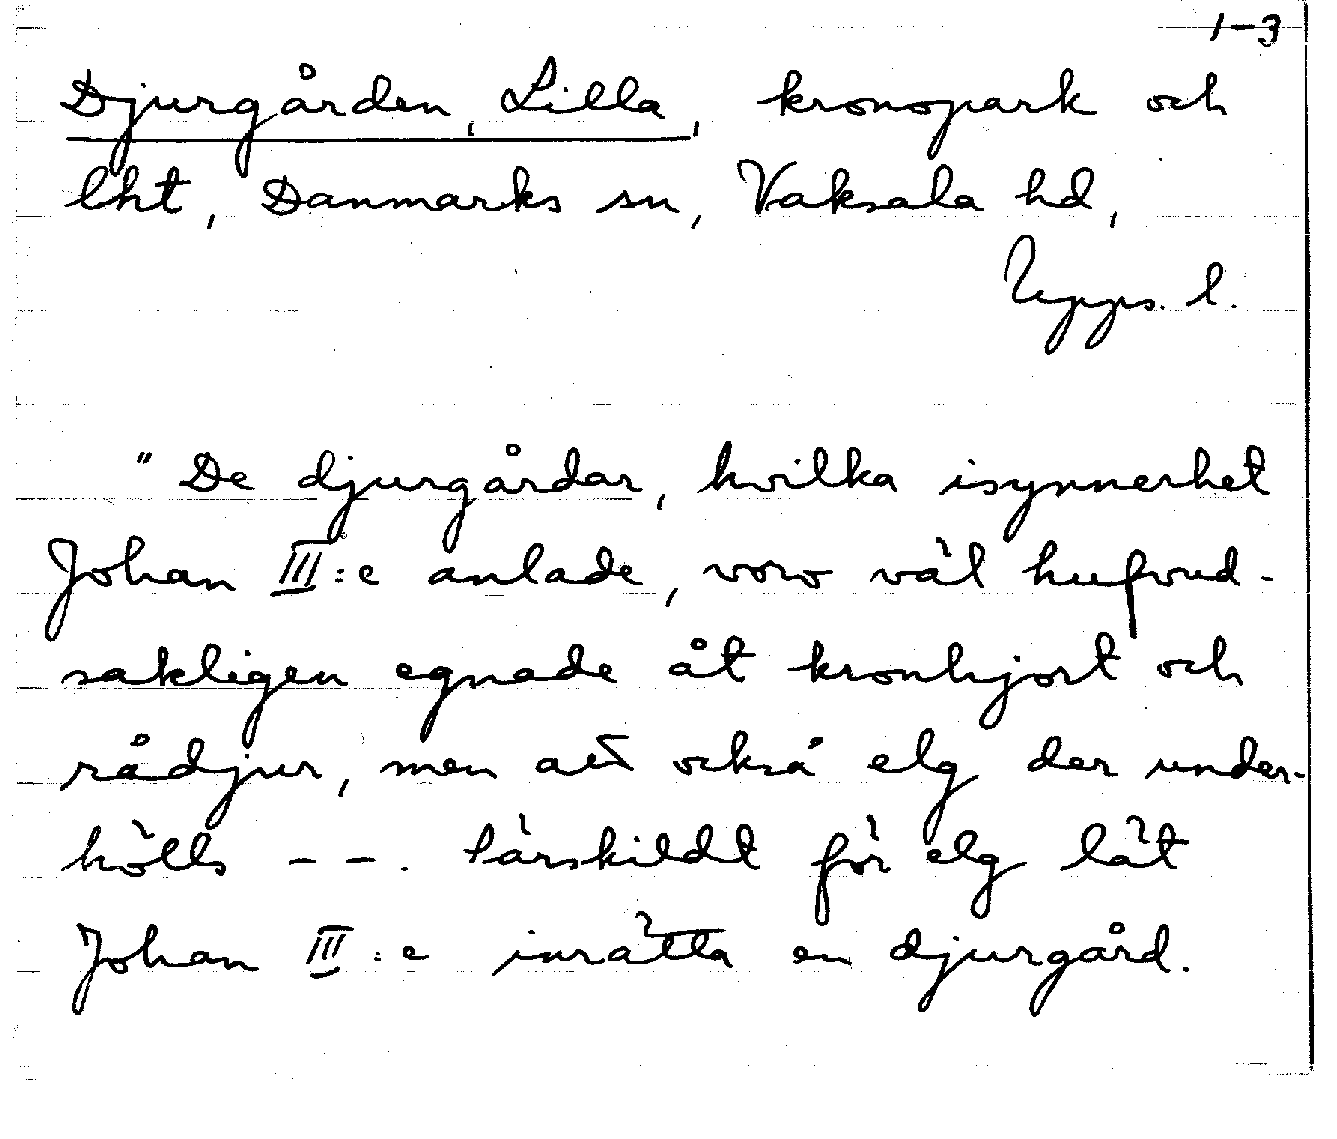 1-3
Djurgården, Lilla, kronopark och
lht, Danmarks sn, Vaksala hd,
Upps. l.
"De djurgårdar, hvilka isynnerhet
Johan III:e anlade, voro väl hufvud-
sakligen egnade åt kronhjort och
rådjur, men att också elg der under-
hölls --. Särskildt för elg lät
Johan III:e inrätta en djurgård.